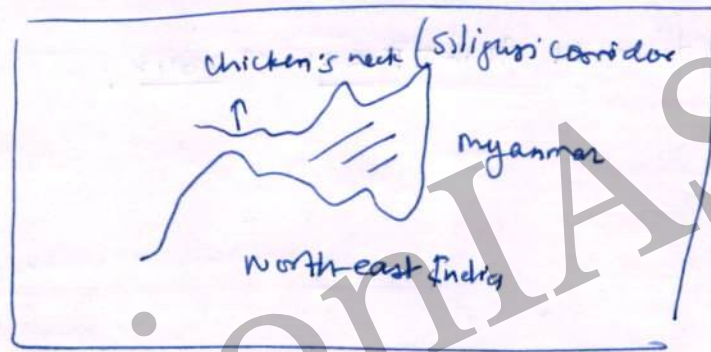 chicken's neck (Siliguri corridor
myanmar
North-east India
ionIAS